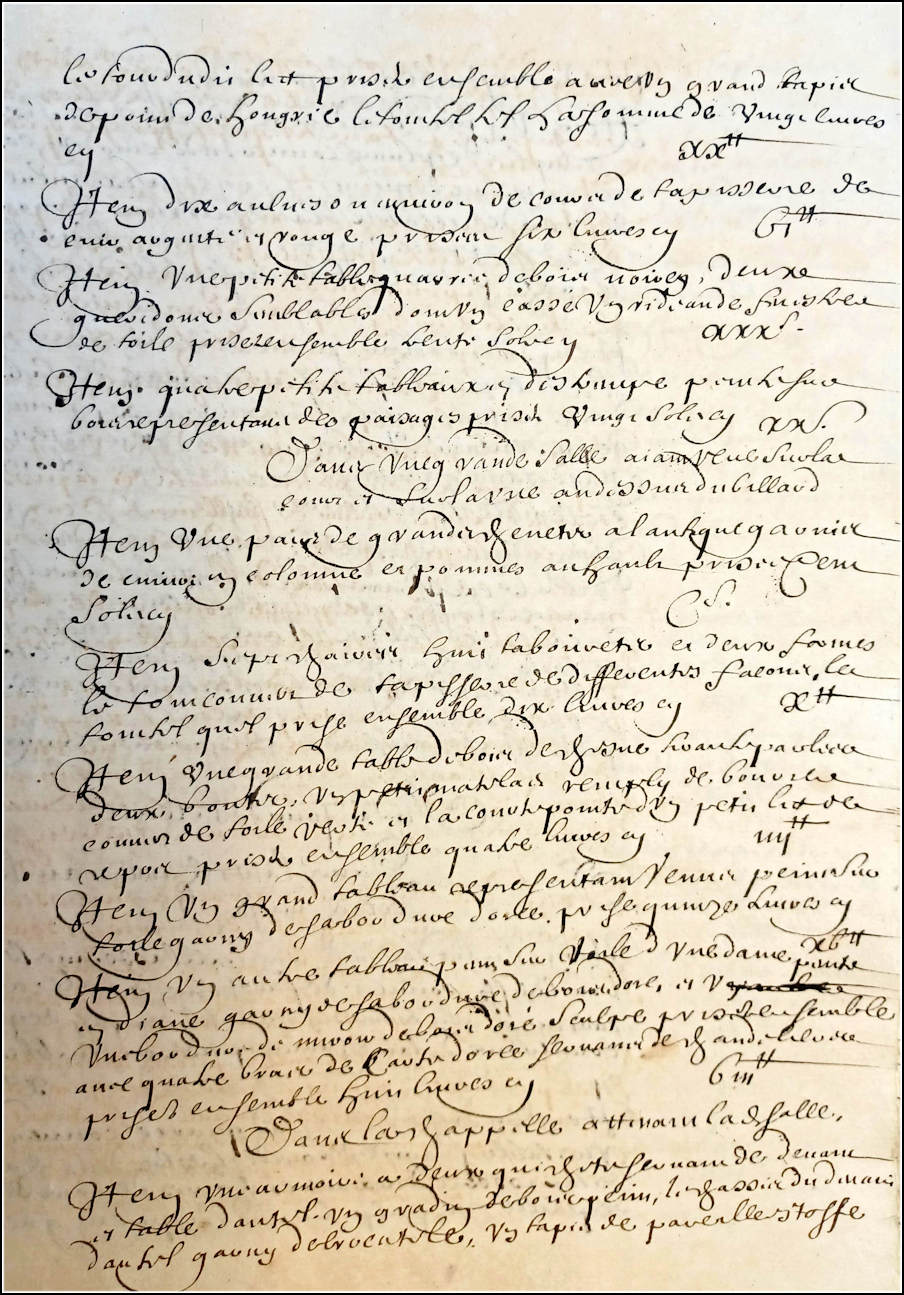 le tour dudit lict prisé ensemble avec un grand tapis
de point de hongrie le tout tel quel la somme de vingt livres
cy xx tt
Item dix aulnes ou environ de cours de tapisserie de
cuir argenté et rouge prisees six livres cy vi tt
Item une petite table quarrée de bois noircy, deux
gueridons semblables dont un cassé un rideau de fenestre
de toile prisez ensemble trente sols cy xxx s.
Item quatre petits tableaux en destempe peints sur
bois representans des paisages prisez vingt sols cy xx s.
Dans une grande salle aiant veue sur la
cour et sur la rue au dessus du billard
Item une paire de grands chenets a lantique garnis
de cuivre en colonne et pommes au hault prisez Cent
Sols cy C s.
Item sept chaises huit tabourets et deux formes
le tout couvert de tapisserie de differentes facons, le
tout tel quel prisé ensemble dix livres cy x tt
Item une grande table de bois de chesne
deux bouts, un petit matelas remply de bourre
couvert de toile verte et la courtepointe d'un petit lict de
repos prisé ensemble quatre livres cy iiij tt
Item un grand tableau representant Venus peint sur
toile garny de sa bordure dorée prisé quinze livres cy xv tt
Item un autre tableau peint sur toile d'une dame peinte
en diane garny de sa bordure de bois doré, et
une bordure de miroir de bois doré sculpté prisé ensemble
avec quatre bras de Carte dorée servans de chandeliers
prisés ensemble huit livres cy viii tt
Dans la chappelle attenant lad. salle,
Item une armoire a deux guichets servant de devant
et table d'autel un gradin de bois peint, le chassis du devant
d'autel garny de brocatelle, un tapis de pareille stoffe